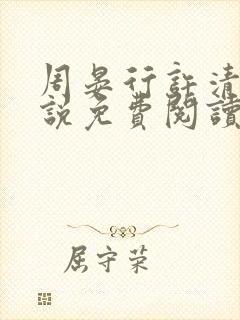 周晏行許清
說免費閱讀
屈守荣